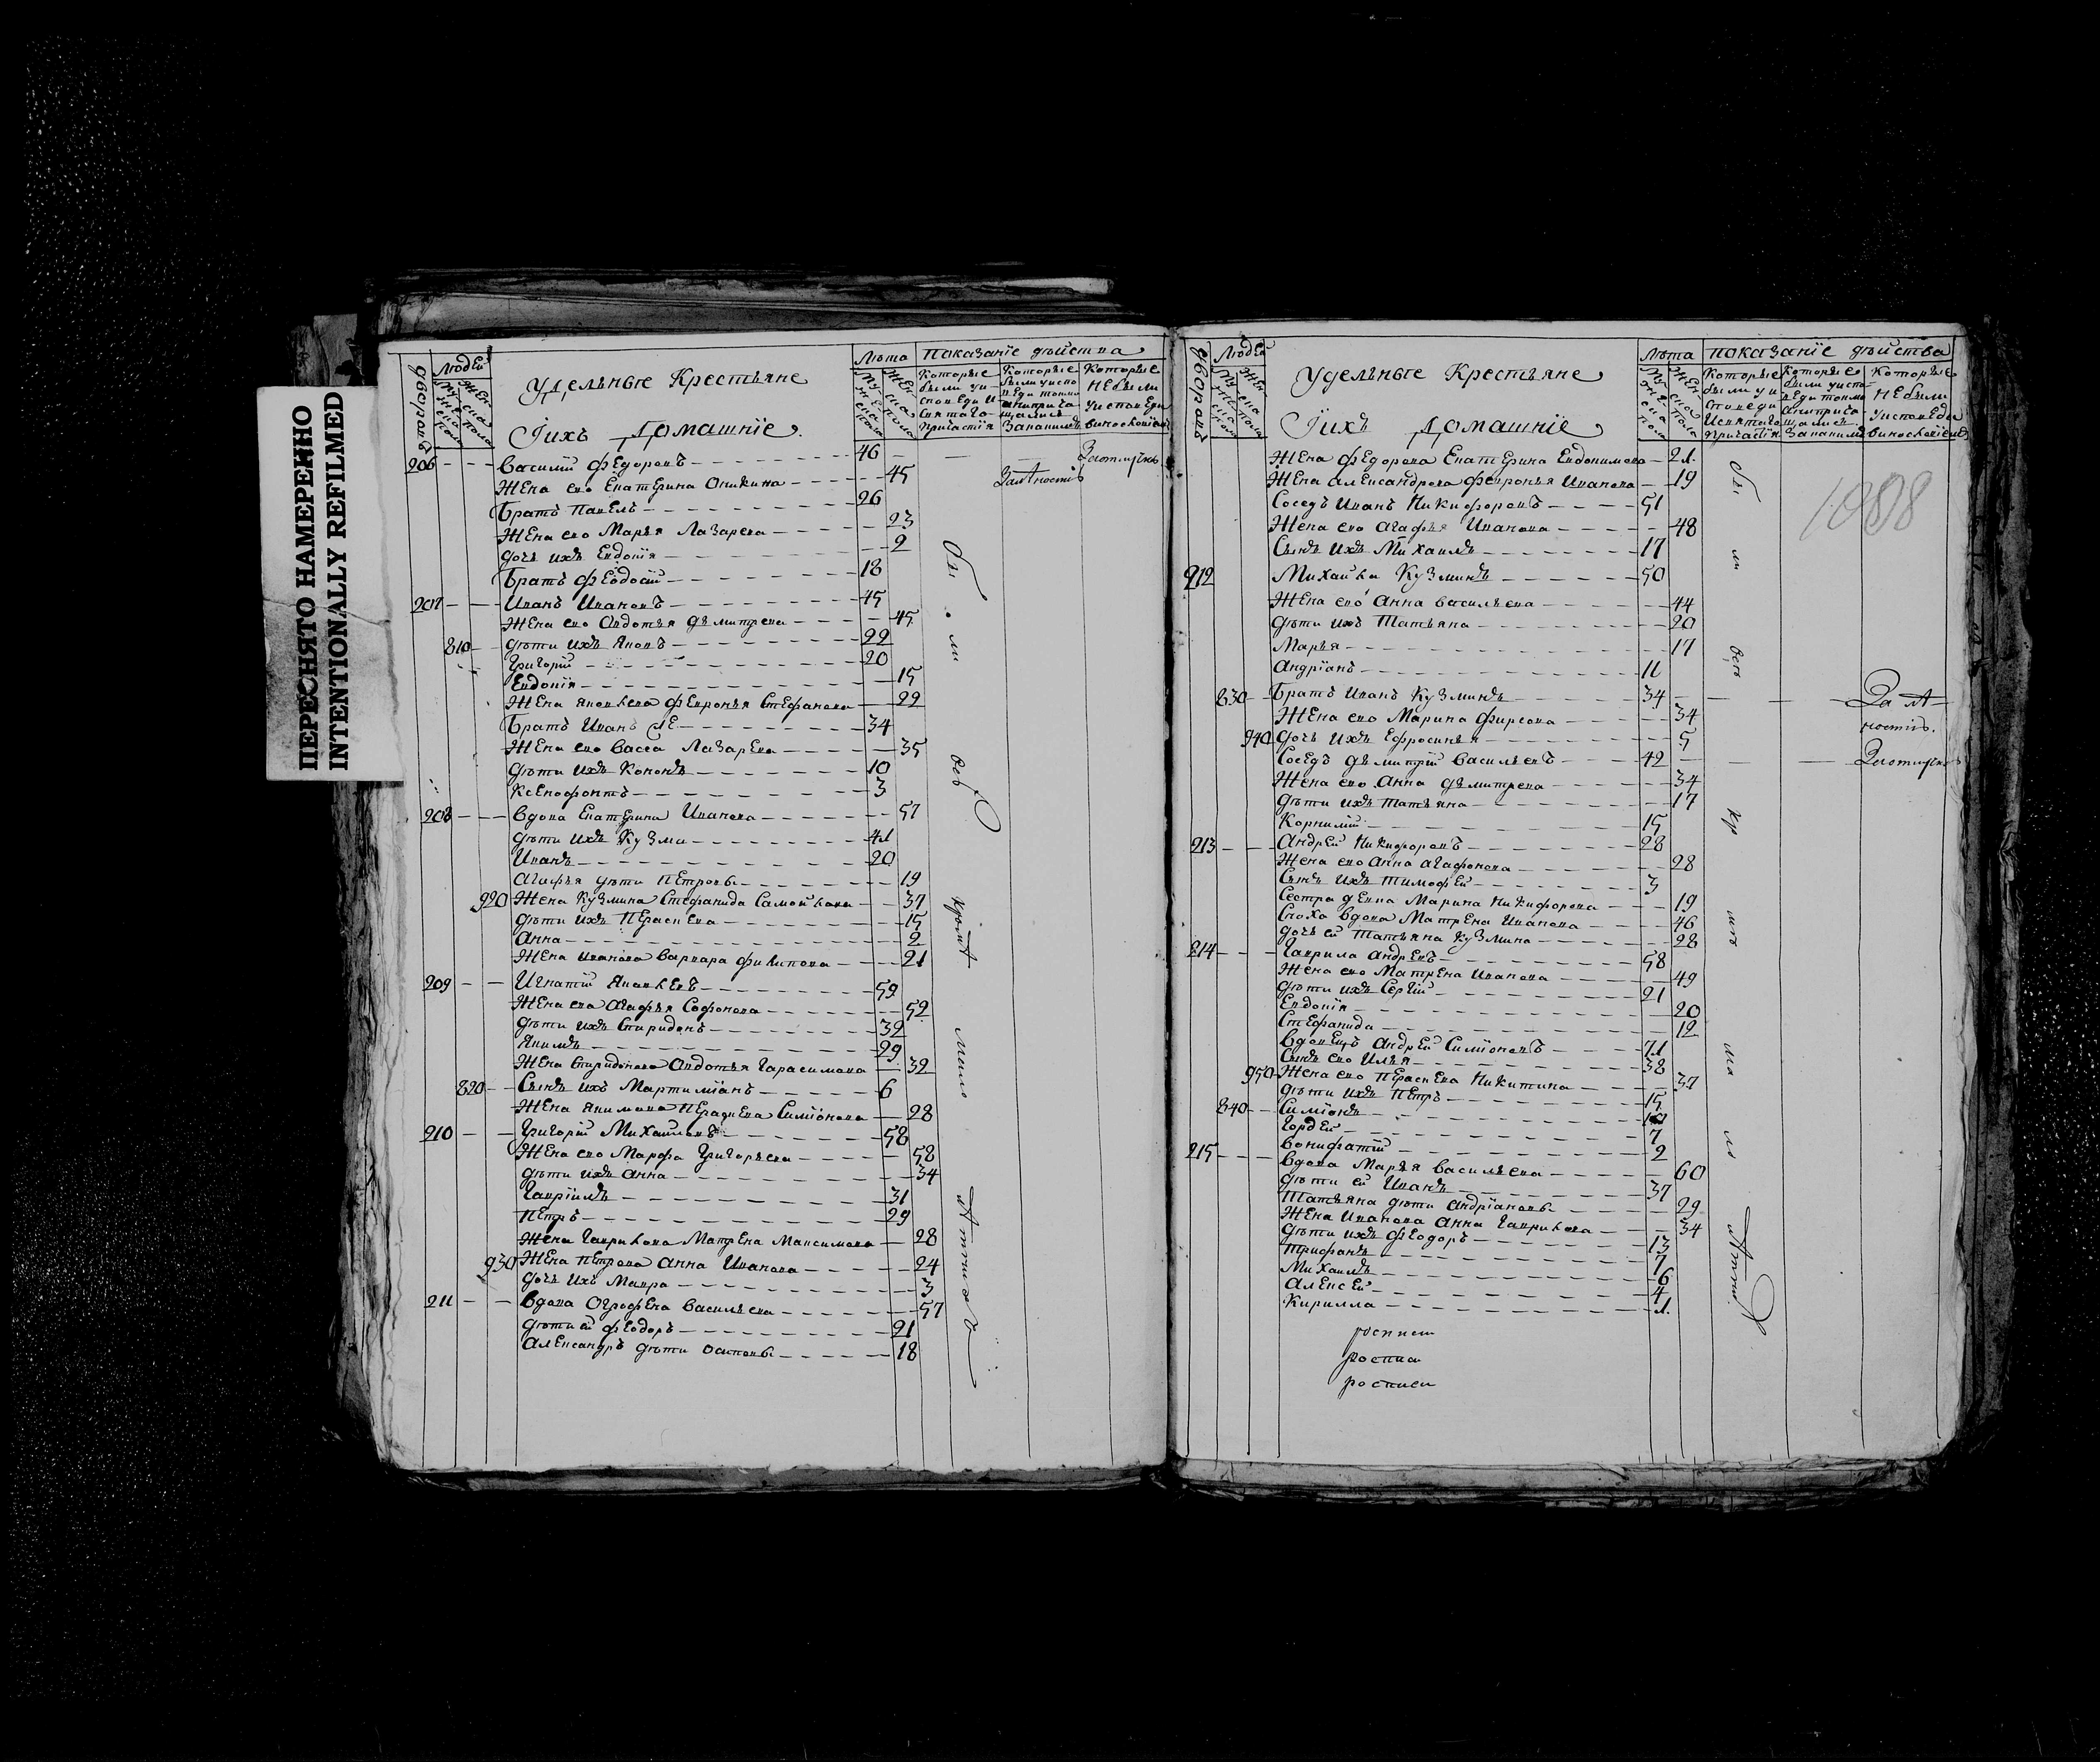 ПЕРЕСНЯТО НАМЕРЕННО
INTENTIONALLY REFILMED
дворовъ
Людей
Мужеска пола
Женска пола
Удельныге Крестьяне
Іихъ Домашніе.
Лѣта
Мужеска пола
Женска пола
показаніе дѣйства
Которые были уисповеди и святаго причастія
Которые были уисповеди токмо анипричащались
Которые небыли уисповеди
206 Василий Федоровъ 46 Заотлучкою
Жена его Екатерина Оникина 45
Братъ Павелъ 26
Жена его Марья Лазарева 23
дочь ихъ Евдокія 2
Братъ Феодосій 18
207 Иванъ Ивановъ 45
Жена его Авдотья дьмитрева 45
810 дѣти ихъ Яковъ 22
Григорій 20
Евдокія 15
Жена Яковлева Февронья Стефанова 22
Братъ Иванъ же 34
Жена его Васса Лазарева 35
дѣти ихъ Кононъ 10
Ксенофонтъ 3
208 Вдова Екатерина Иванова 57
дѣти ихъ Кузма 41
Иванъ 20
Агафья дѣти Петровы 19
920 Жена Кузмина Стефанида Самойлова 37
дѣти ихъ Перасьева 15
Анна 2
Жена Иванова Варвара Филипова 21
209 Игнатій Яковлевъ 59
Жена его Агафья Софонова 52
дѣти ихъ Спиридонъ 32
Якимъ 29
Жена Спиридонова Авдотья Гарасимова 32
820 Сынъ ихъ Мартиміанъ 6
Жена Якимова Перасьева Симіонова 28
210 Григорій Михайловъ 58
Жена его Марфа Григорьева 58
дѣти ихъ Анна 34
Гавріилъ 31
Петръ 29
Жена Гаврилова Матрена Максимова 28
930 Жена Петрова Анна Иванова 24
дочь ихъ Мавра 3
211 Вдова Огрофена Васильева 57
дѣти ей Феодоръ 21
Александръ дѣти Осиповы 18
дворовъ
Людей
Мужеска пола
Женска пола
Удельныге Крестьяне
Іихъ Домашніе
Лѣта
Мужеска пола
Женска пола
показаніе дѣйства
Которые были уисповеди Исвятаго причастія
Которые были уисповеди токмо анипричащались
Которые небыли уисповеди
1088
Жена Федорова Екатерина Евдокимова 21
Жена Александрова Февронья Иванова 19
Соседъ Иванъ Никифоровъ 51
Жена его Агафья Иванова 48
Сынъ ихъ Михаилъ 17
212 Михайла Кузминъ 50
Жена его Анна Васильева 44
дѣти ихъ Татьяна 20
Марья 17
Андріанъ 11
830 Братъ Иванъ Кузминъ 34
Жена его Марина Фирсова 34
940 дочь ихъ Ефросинья 5
Соседъ дьмитрій Васильевъ 42 Заотлучкою
Жена его Анна дьмитрева 34
дѣти ихъ Татьяна 17
Корнилій 15
213 Андрей Никифоровъ 28
Жена его Анна Агафонова 28
Сынъ ихъ Тимофей 3
Сестра девка Марина Никифорова 19
Сноха вдова Матрена Иванова 46
дочь ей Татьяна Кузмина 28
214 Гаврила Андревъ 58
Жена его Матрена Иванова 49
дѣти ихъ Сергій 21
Евдокія 20
Стефанида 12
Вдовецъ Андрей Симіоновъ 71
Сынъ его Илья 38
950 Жена его Перасьева Никитина 37
дѣти ихъ Петръ 15
840 Симіонъ
Гордей 7
Вонифатій 2
215 Вдова Марья Васильева 60
дѣти ей Иванъ 37
Татьяна дѣти Андріановы 29
Жена Иванова Анна Гаврилова 34
дѣти ихъ Феодоръ 13
Трифанъ 7
Михаилъ 6
Алексей 4
Кирилла 1
росписи
росписи
росписи